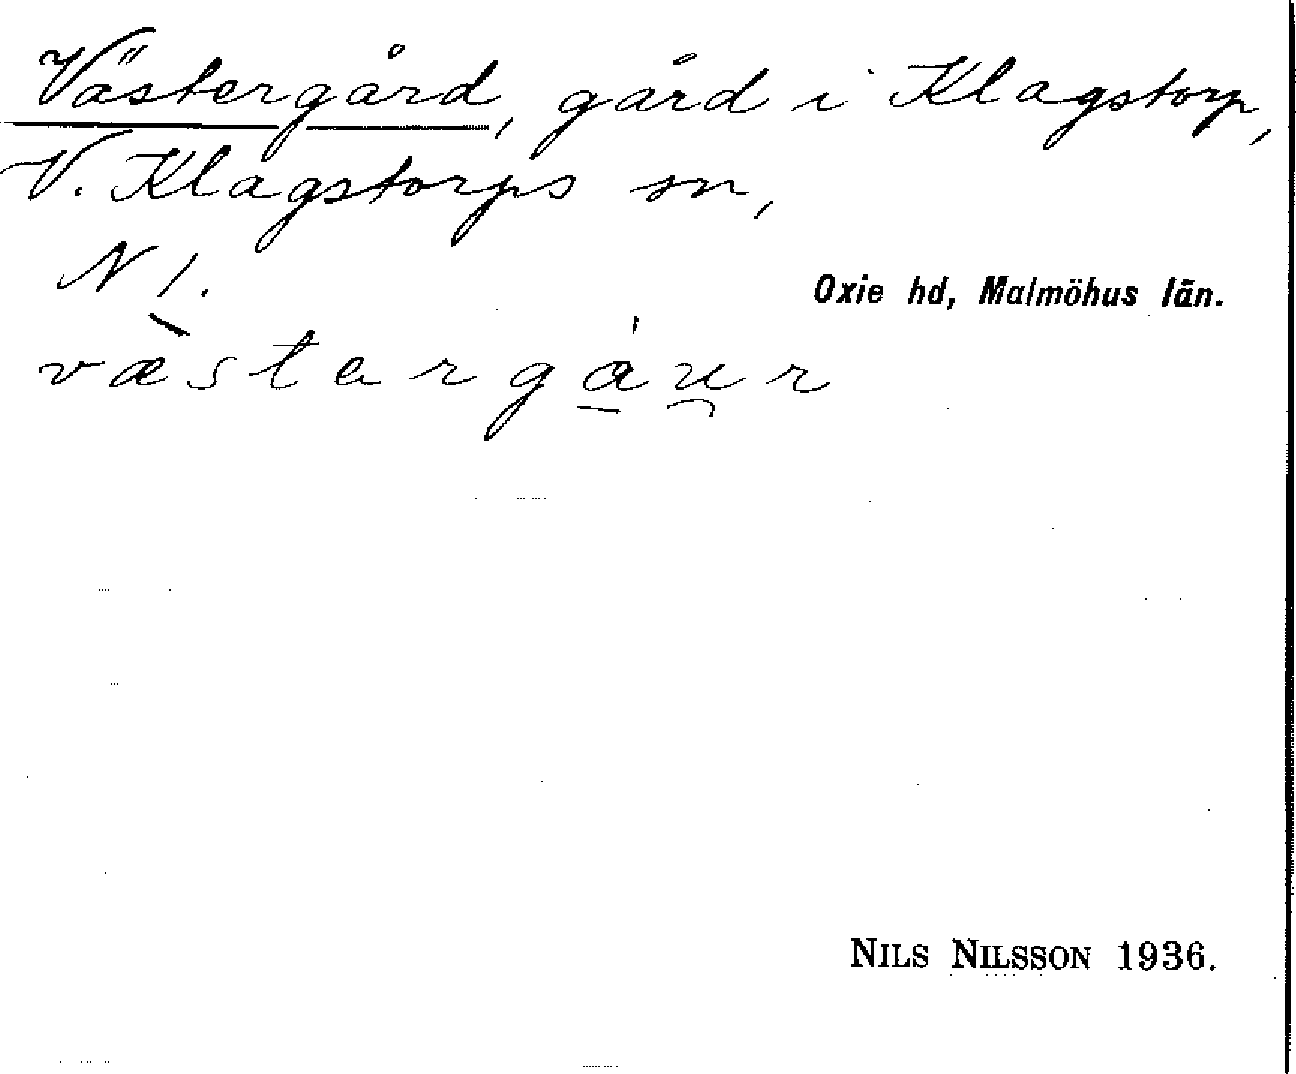 Västergård, gård i Klagstorp,
V. Klagstorps sn,
N 1.
Oxie hd, Malmöhus län.
væ̀stergáu̯r
NILS NILSSON 1936.